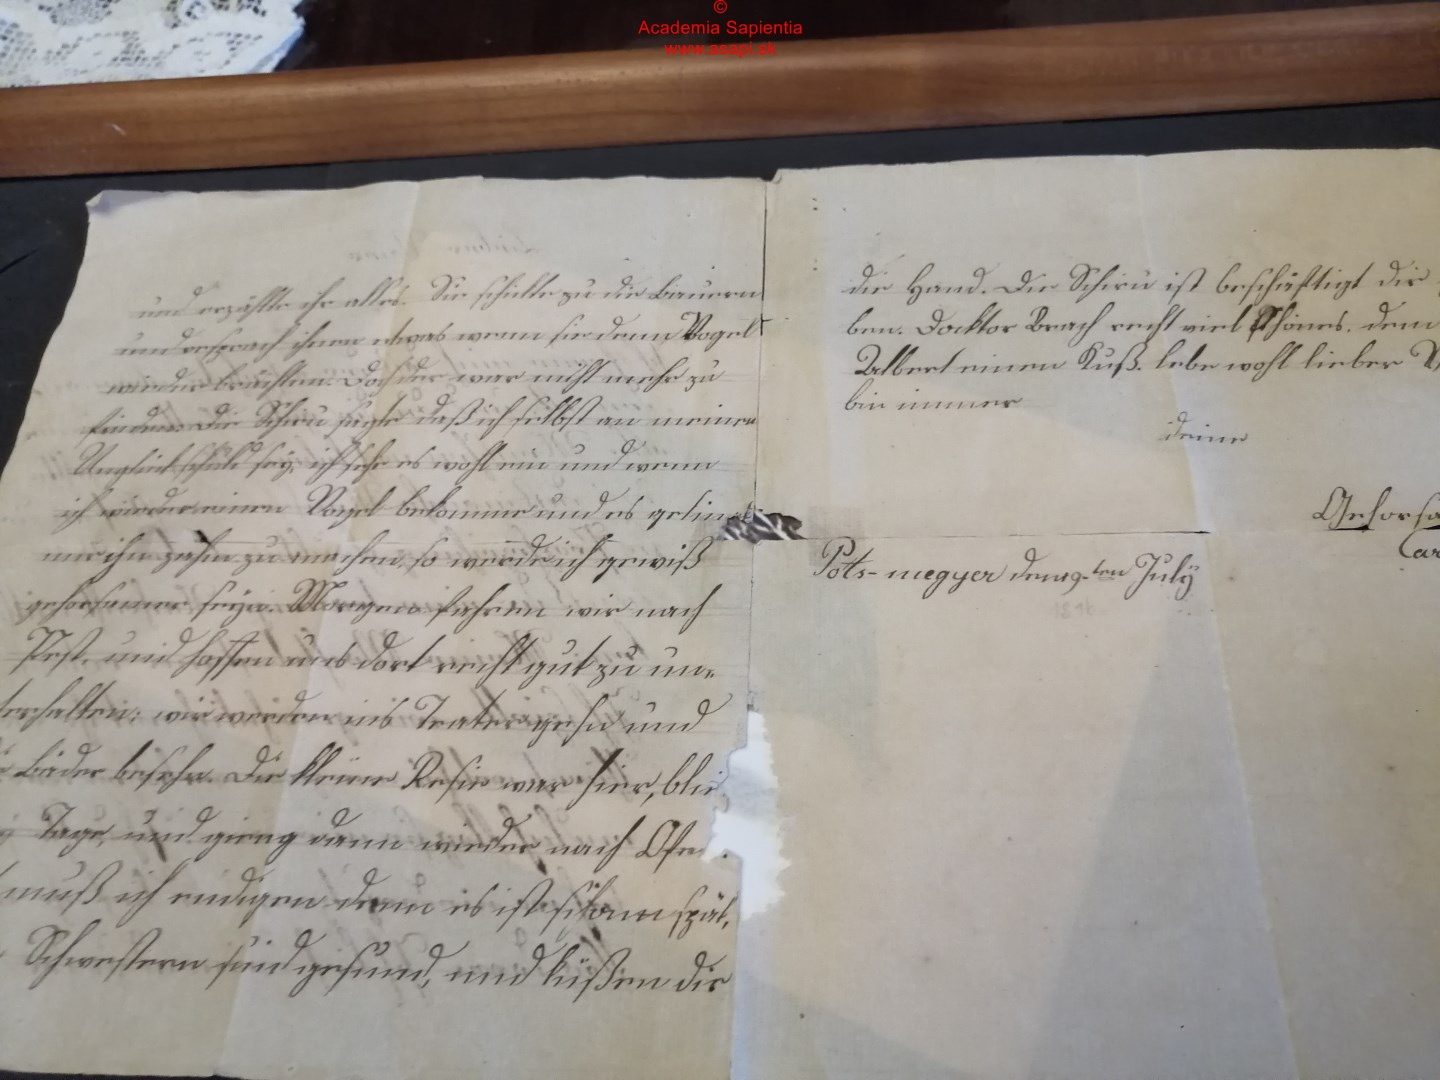 ©
Academia Sapientia
www.asapi.sk
und erzählte ihr alles. Sie schickte zu die Bauern
und versprach ihnen etwas wenn sie denn Vogel
wieder brächten. Doch der war nicht mehr zu
finden. Die Schiru sagte daß ich selbst an meinen
Unglück schuld sey, ich sehe es wohl ein und wenn
ich wieder einen Vogel bekomme und es gelin
mir ihn zahm zu machen, so werde ich gewiß
gehorsamer seyn. Morgen fahren wir nach
Pest, und hoffen uns dort recht gut zu un-
terhalten; wir werden ins Teater gehn und
Bäder besehn. Die kleine Resie war hier, blie
Tage, und gieng dann wieder nach Ofen.
muß ich endigen denn es ist schon spät,
Schwestern sind gesund, und küßen dir
die Hand. Die Schiru ist beschäftigt dir
ben. Docktor Brach recht viel Schönes. dem
Albert einen Kuß. lebe wohl lieber
bin immer
deine
Gehorsa
Car
Póts-megyer den 19-ten July
1846